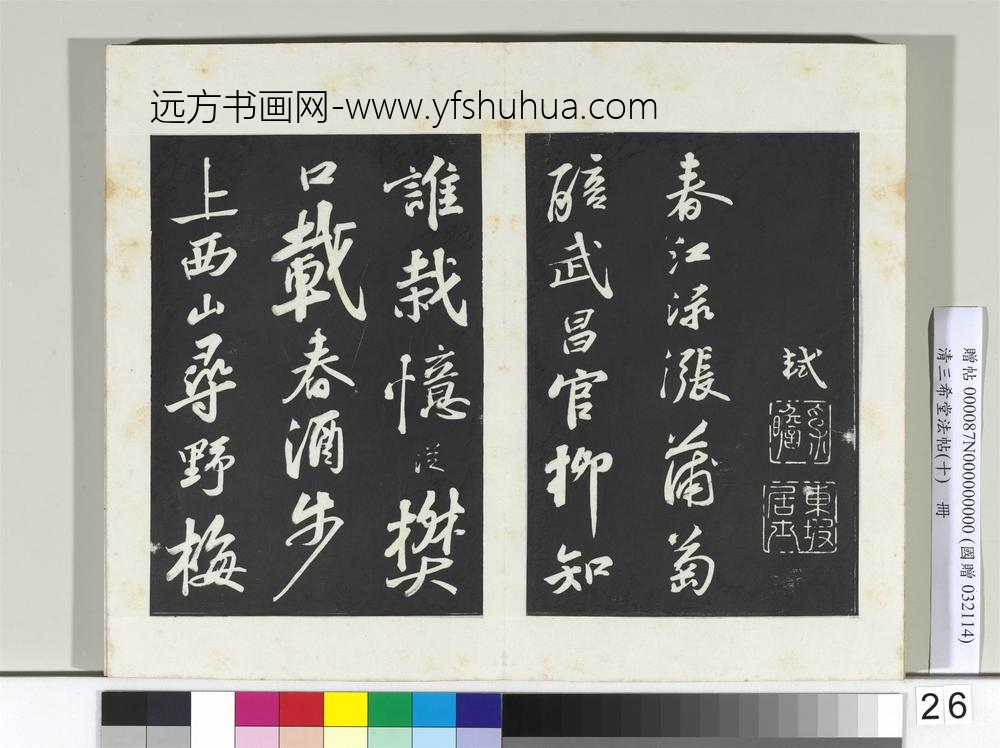 远方书画网-www.yfshuhua.com
軾
東坡居士
春江渌漲蒲萄
醅武昌官柳知
誰栽憶從樊
口載春酒步
上西山尋野梅
贈帖 000087N000000000 (國贈 032114)
清三希堂法帖(十) 冊
26